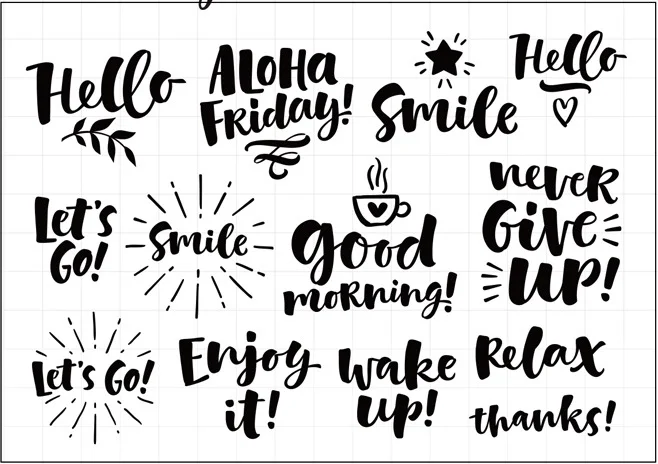 Hello
ALOHA
FRiday!
Smile
Hello
Let's
Go!
Smile
good
moRning!
neveR
Give
UP!
Let's Go!
Enjoy
it!
wake
up!
Relax
thanks!